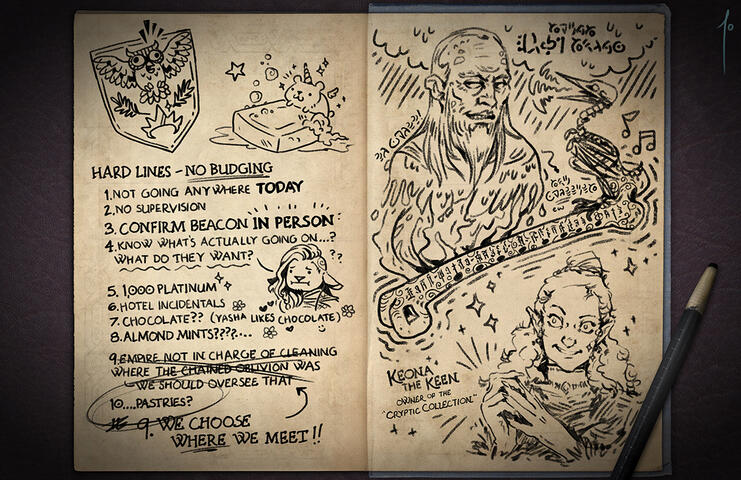 HARD LINES - NO BUDGING
1. NOT GOING ANYWHERE TODAY
2. NO SUPERVISION
3. CONFIRM BEACON IN PERSON
4. KNOW WHAT'S ACTUALLY GOING ON...?
WHAT DO THEY WANT?
??
5. 1,000 PLATINUM
6. HOTEL INCIDENTALS
7. CHOCOLATE?? (YASHA LIKES CHOCOLATE)
8. ALMOND MINTS????....
9. EMPIRE NOT IN CHARGE OF CLEANING
WHERE THE CHAINED OBLIVION WAS
- WE SHOULD OVERSEE THAT
10....PASTRIES?
9. WE CHOOSE
WHERE WE MEET!!
KEONA
THE KEEN
OWNER OF THE
"CRYPTIC COLLECTION"